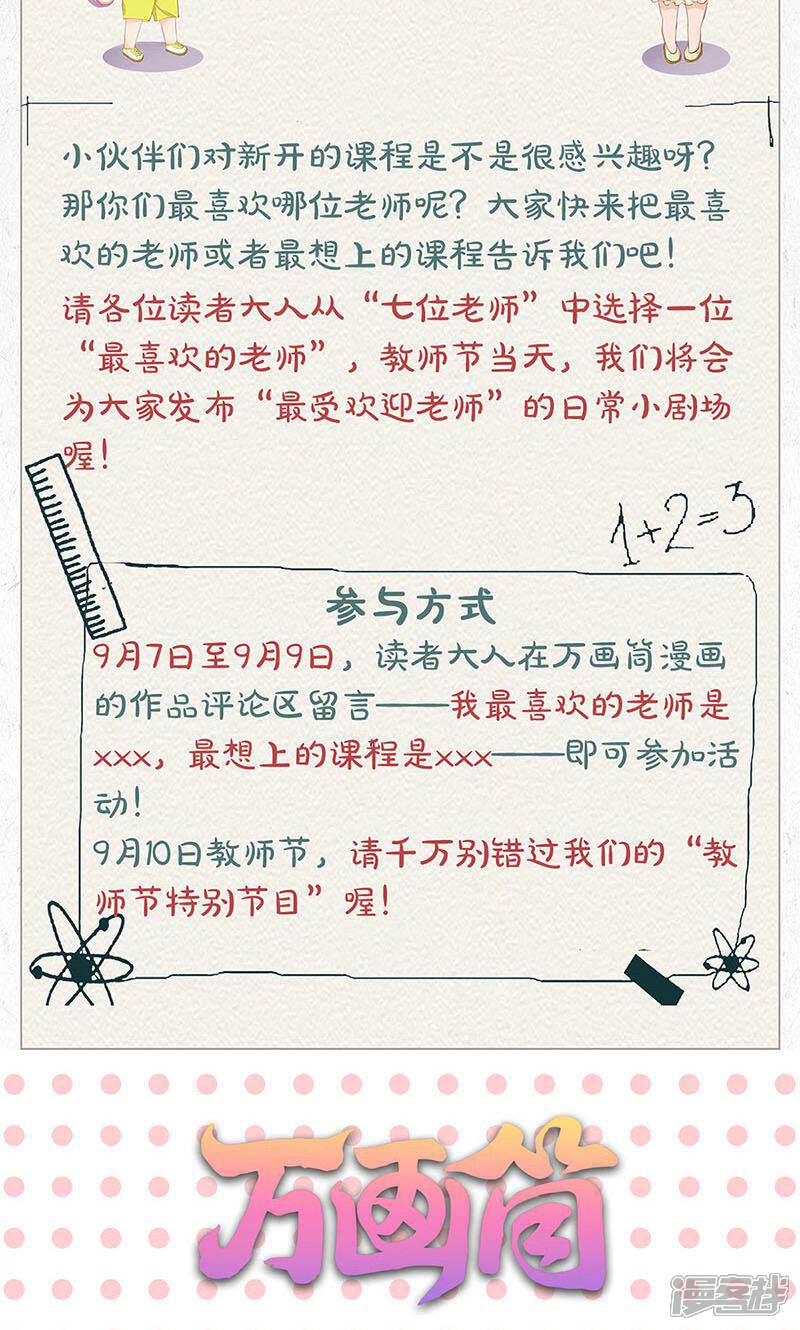 小伙伴们对新开的课程是不是很感兴趣呀？
那你们最喜欢哪位老师呢？大家快来把最喜
欢的老师或者最想上的课程告诉我们吧！
请各位读者大人从“七位老师”中选择一位
“最喜欢的老师”，教师节当天，我们将会
为大家发布“最受欢迎老师”的日常小剧场
喔！
1+2=3
参与方式
9月7日至9月9日，读者大人在万画筒漫画
的作品评论区留言——我最喜欢的老师是
xxx，最想上的课程是xxx——即可参加活
动！
9月10日教师节，请千万别错过我们的“教
师节特别节目”喔！
万画筒
漫客栈